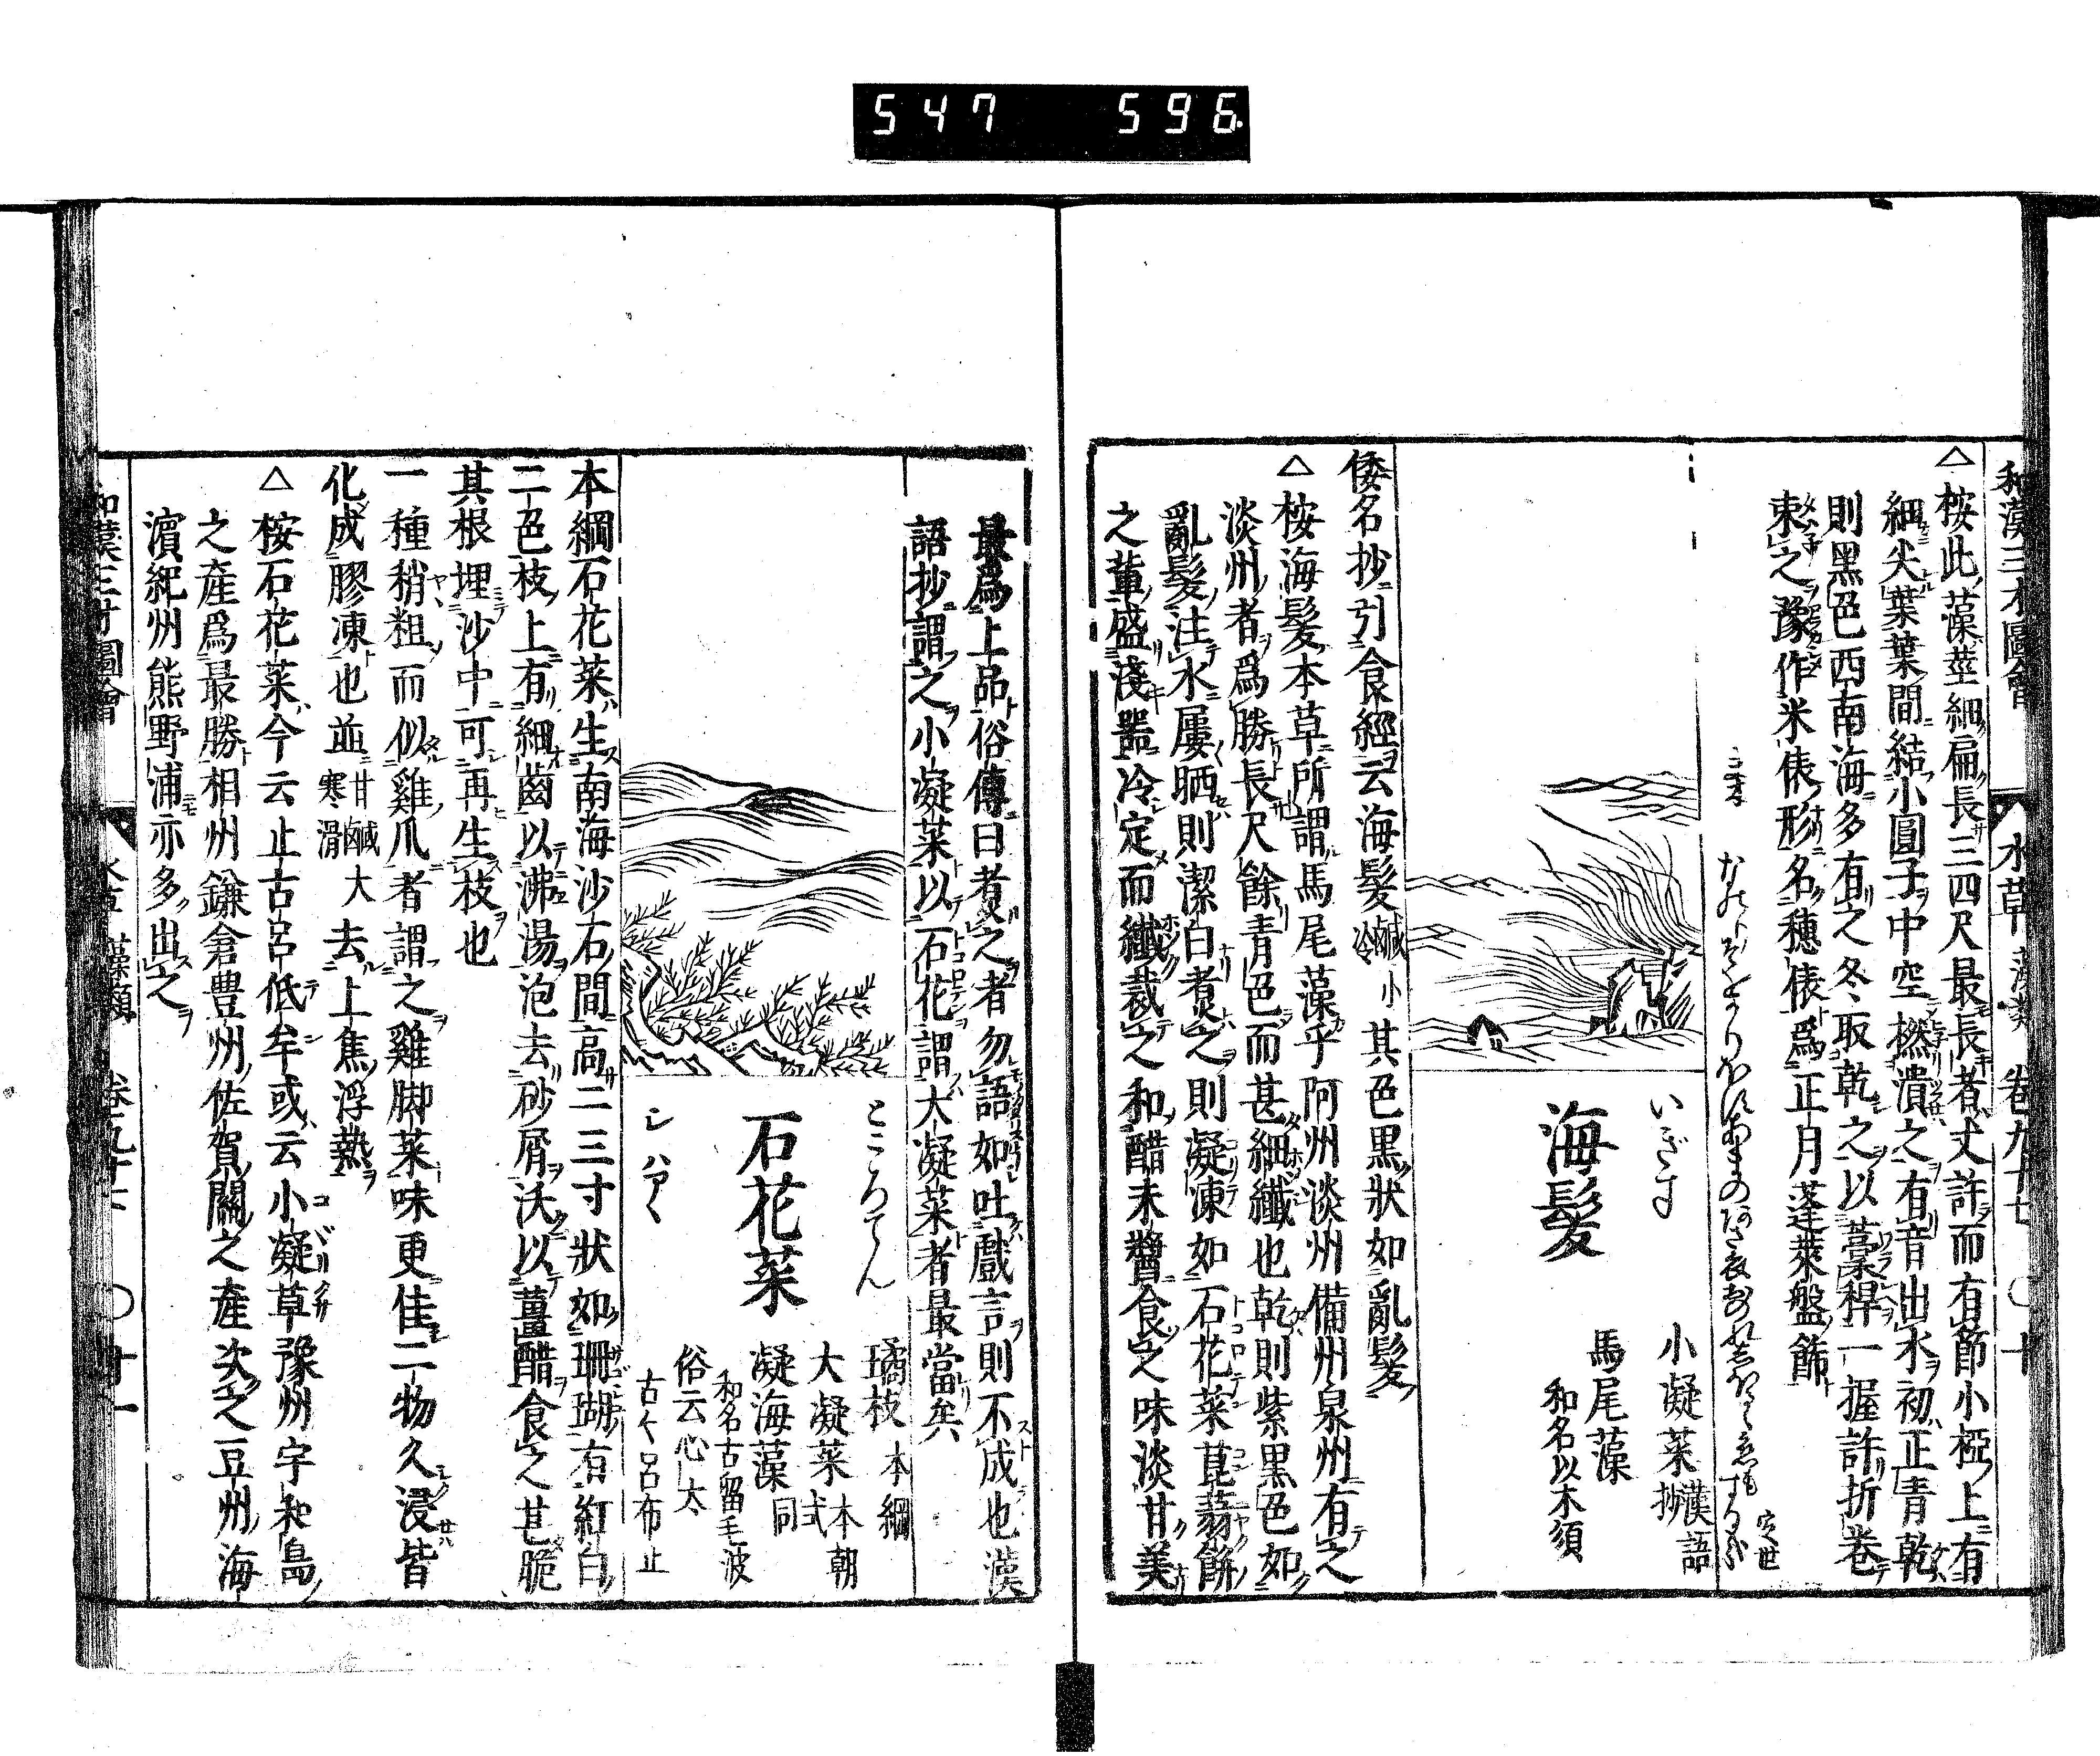 547 596
和漢三才圖會 水草 藻類 卷九十七 ○ 十
△桉此藻莖細扁長三四尺最長者丈許而有節小椏上有
細尖葉葉間結小圓子中空撚潰之有音出水初正青乾
則黑色西南海多有之冬取乾之以藁稈一握許折卷
束之豫作米俵形名穗俵爲正月蓬萊盤飾
海髮
いぎす
小凝菜 漢語抄
馬尾藻
和名以木須
倭名抄引食經云海髮鹹小冷其色黑狀如亂髮
△桉海髮本草所謂馬尾藻乎阿州淡州備州泉州有之
淡州者爲勝長尺餘青色而甚細纖也乾則紫黑色如
亂髮注水屢晒則潔白煑之則凝凍如石花菜菎蒻餅
之軰盛淺噐冷定而纖裁之和醋未醬食之味淡甘美
最爲上品俗傳曰煑之者勿語如吐戲言則不成也漢
語抄謂之小凝菜以石花謂大凝菜者最當矣
石花菜
ところてん
シ ハアク
璚枝 本綱
大凝菜 本朝式
凝海藻 同
和名古留毛波
俗云心太
古々呂布止
本綱石花菜生南海沙石間高二三寸狀如珊瑚有紅白
二色枝上有細齒以沸湯泡去砂屑沃以薑醋食之甚脆
其根埋沙中可再生枝也
一種稍粗而似雞爪者謂之雞脚菜味更佳二物久浸皆
化成膠凍也並甘鹹大寒滑去上焦浮熱
△桉石花菜今云止古呂低牟或云小凝草豫州宇和島
之產爲最勝相州鎌倉豊州佐賀關之產次之豆州海
濵紀州熊野浦亦多出之
和漢三才圖會 水草 藻類 卷九十七 ○ 十一